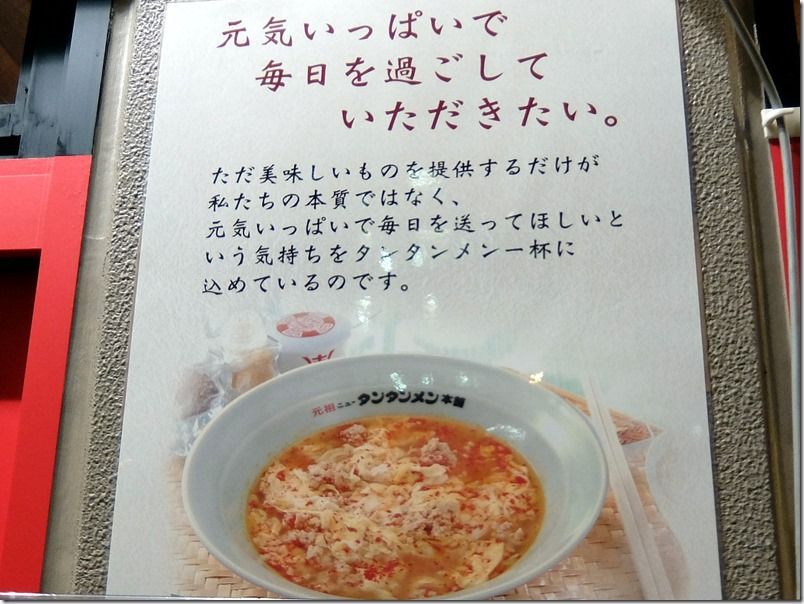 元気いっぱいで
毎日を過ごして
いただきたい。
ただ美味しいものを提供するだけが
私たちの本質ではなく、
元気いっぱいで毎日を送ってほしいと
いう気持ちをタンタンメン一杯に
込めているのです。
元祖ニュータンタンメン本舗